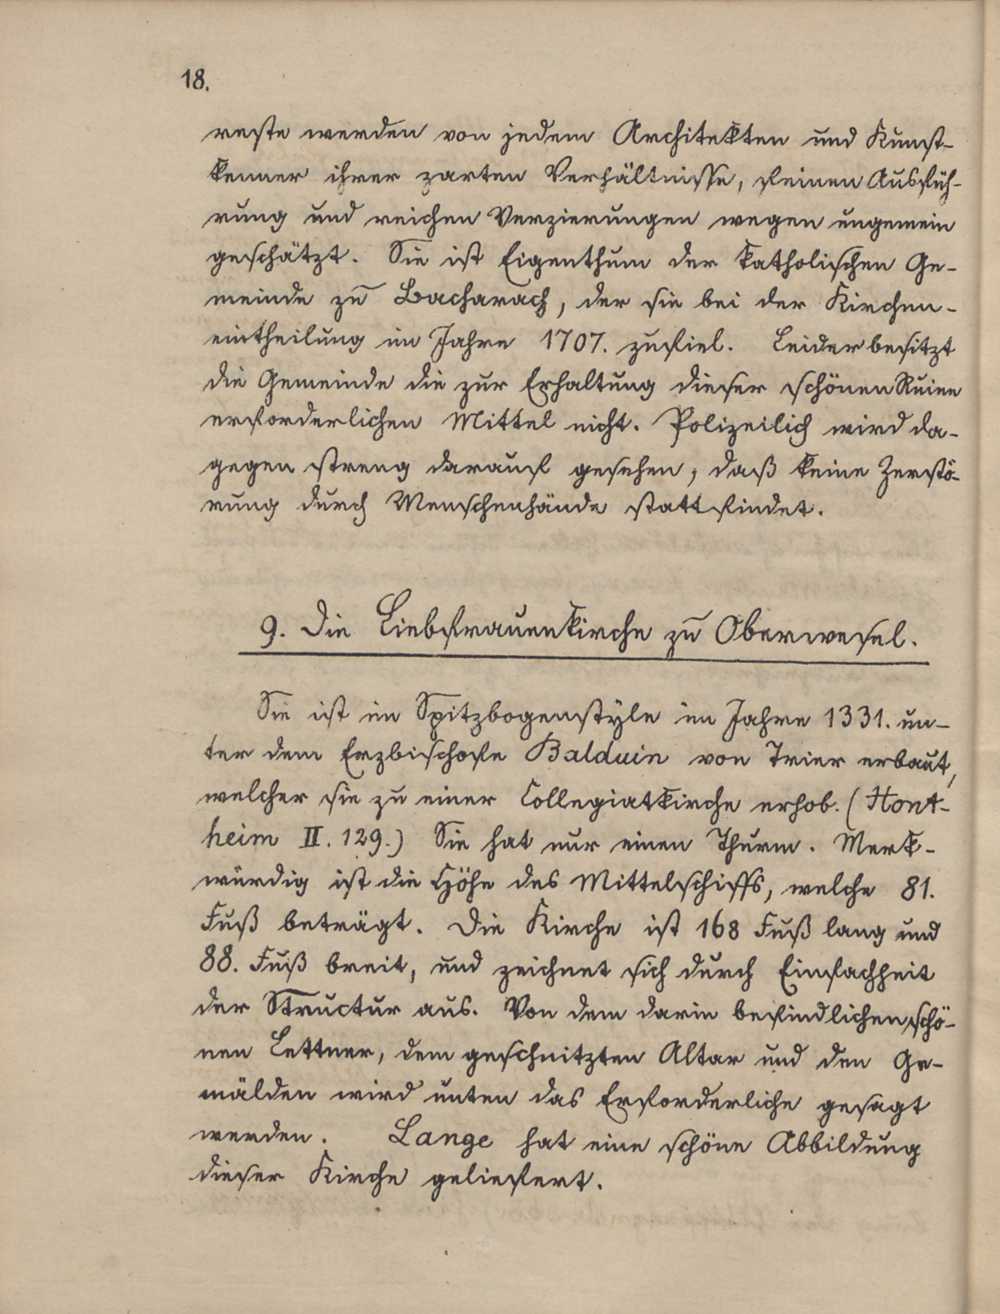 18.
reste werden von jedem Architekten und Kunst-
kenner ihrer zarten Verhältnisse, feinen Ausfüh-
rung und reichen Verzierungen wegen ungemein
geschätzt. Sie ist Eigenthum der katholischen Ge-
meinde zu Bacharach, der sie bei der Kirchen-
eintheilung im Jahre 1707. zufiel. Leider besitzt
die Gemeinde die zur Erhaltung dieser schönen Ruine
erforderlichen Mittel nicht. Polizeilich wird da-
gegen streng darauf gesehen, daß keine Zerstö-
rung durch Menschenhände stattfindet.
9. Die Liebfrauenkirche zu Oberwesel.
Sie ist im Spitzbogenstyle im Jahre 1331. un-
ter dem Erzbischofe Balduin von Trier erbaut,
welcher sie zu einer Collegiatkirche erhob. (Hont-
heim II. 129.) Sie hat nur einen Thurm. Merk-
würdig ist die Höhe des Mittelschiffs, welche 81.
Fuß beträgt. Die Kirche ist 168 Fuß lang und
88. Fuß breit, und zeichnet sich durch Einfachheit
der Structur aus. Von dem darin befindlichen schö-
nen Lettner, dem geschnitzten Altar und den Ge-
mälden wird unten das Erforderliche gesagt
werden. Lange hat eine schöne Abbildung
dieser Kirche geliefert.